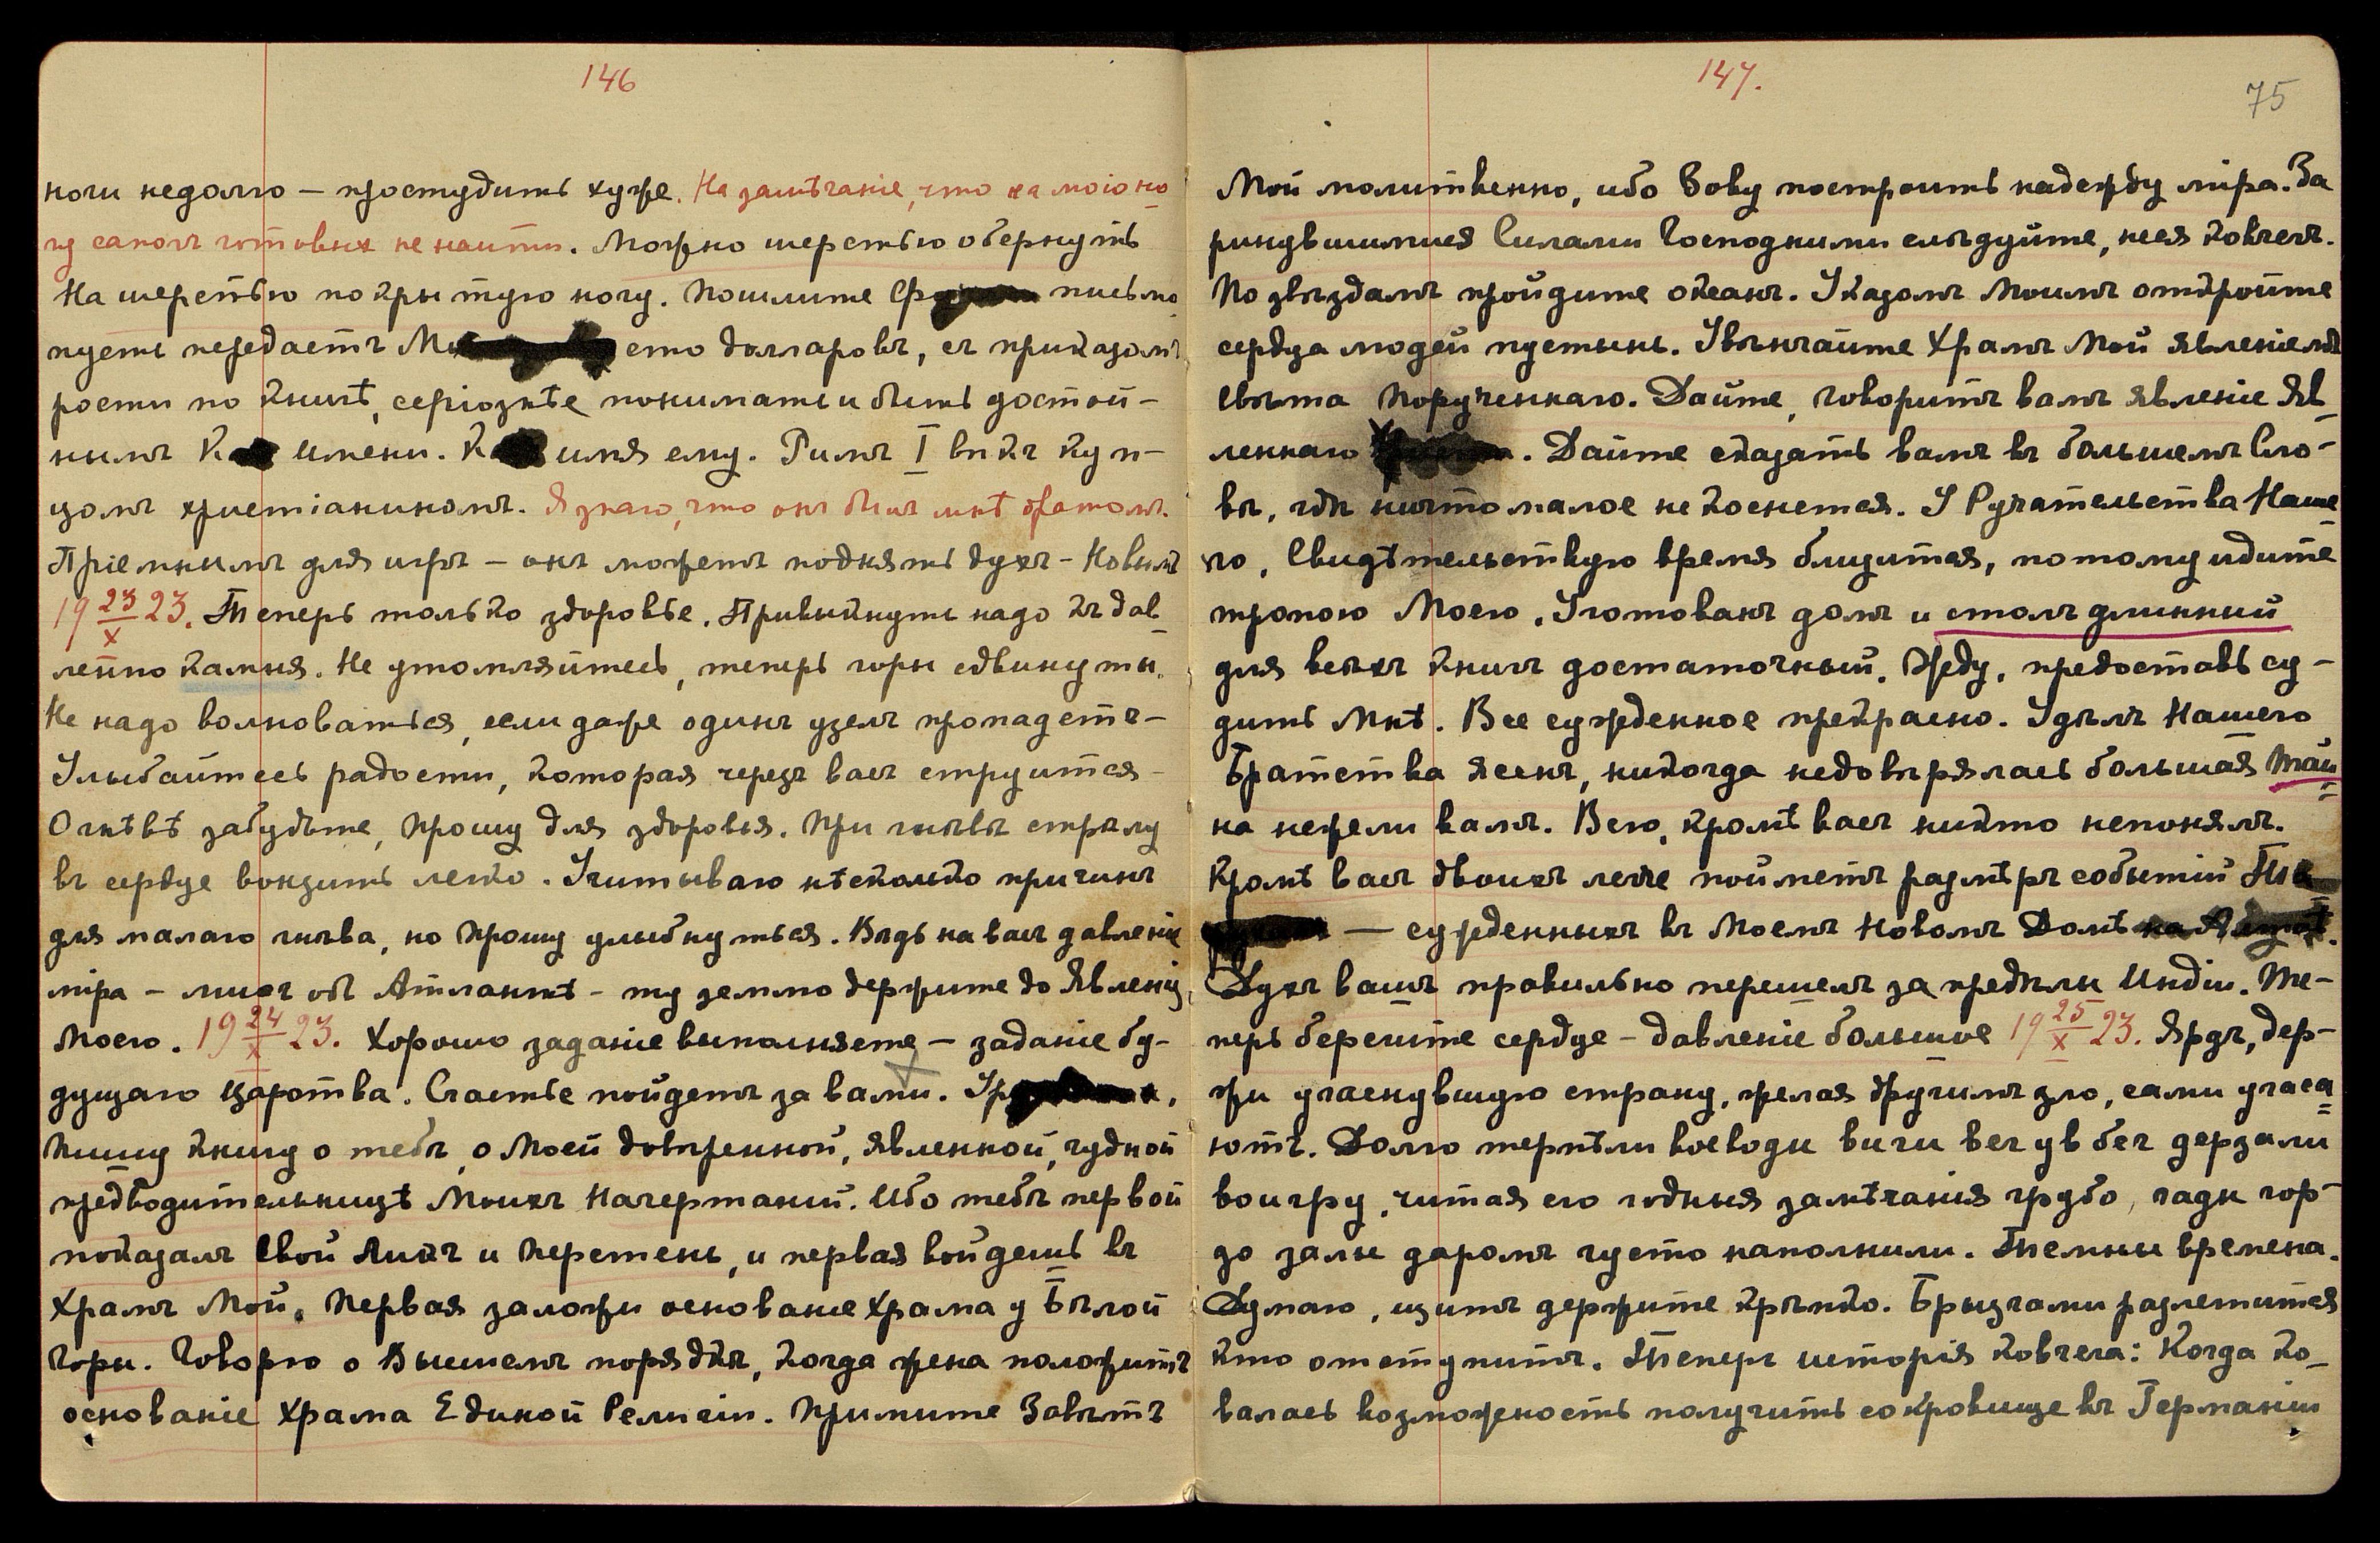 146
ноги недолго — простудить хуже. На замѣчаніе, что на мою но
гу сапогъ готовыхъ не найти. Можно шерстью обернуть
На шерстью покрытую ногу. Пошлите письмо
пусть передастъ сто долларовъ, съ приказомъ
рости по книгѣ, серіознѣе понимать и быть достой-
нымъ имени. имя ему. Римъ I вѣкъ куп-
цомъ христіаниномъ. Я знаю, что онъ былъ мнѣ братомъ.
Пріемнымъ для игръ — онъ можетъ поднять духъ — Новымъ
19 23/X 23. Теперь только здоровье. Привыкнуть надо къ дав
ленію камня. Не утомляйтесь, теперь горы сдвинуты.
Не надо волноваться, если даже одинъ узелъ пропадетъ —
Улыбайтесь радости, которая черезъ васъ струится —
О гнѣвѣ забудьте, Прошу для здоровья. При гнѣвѣ стрѣлу
въ сердце вонзить легко. Учитываю нѣсколько причинъ
для малаго гнѣва, но Прошу улыбнуться. Вѣдь на васъ давленіе
міра — миѳъ объ Атлантѣ — ту землю держите до Явленія
Моего. 19 24/X 23. Хорошо заданіе выполняете — заданіе бу-
дущаго царства. Счастье пойдетъ за вами.
Пишу книгу о тебѣ, о Моей довѣренной, явленной, чудной
предводительницѣ Моихъ Начертаний. Ибо тебѣ первой
показалъ Свой Ликъ и Перстень, и первая войдешь въ
Храмъ Мой. Первая заложи основаніе Храма у Бѣлой
Горы. Говорю о Высшемъ порядкѣ, когда жена положитъ
основаніе Храма Единой Религіи. Примите Завѣтъ
147.
75
Мой молитвенно, ибо Зову построить надежду міра. За
ринувшимися Силами Господними слѣдуйте, неся Ковчегъ.
По звѣздамъ пройдите океанъ. Указомъ Моимъ откройте
сердца людей пустынь. Увѣнчайте Храмъ Мой явленіемъ
Свѣта Порученнаго. Дайте, Говоритъ вамъ явленіе Яв
леннаго . Дайте сказать вамъ въ большемъ Сло-
вѣ, гдѣ ничто малое не коснется. У Ручательства Наше
го, Свидѣтельствую время близится, потому идите
тропою Моею. Уготованъ домъ и столъ длинный
для всѣхъ книгъ достаточный. Жду, предоставь су-
дить Мнѣ. Все сужденное прекрасно. Удѣлъ Нашего
Братства ясенъ, никогда недовѣрялась большая тай
на нежели вамъ. Всю, кромѣ васъ никто непонялъ.
Кромѣ васъ двоихъ легче пойметъ размѣръ событій
— сужденныхъ въ Моемъ Новомъ Домѣ
Духъ вашъ правильно перешелъ за предѣлы Индіи. Те-
перь берегите сердце — давленіе большое 19 25/X 23. Ярдъ, дер-
жи угаснувшую страну, желая другимъ зло, сами угаса
ютъ. Долго терпѣли воеводы дерзали
во игру, читая его годныя замѣчанія грубо, гады гор-
до залы даромъ густо наполнили. Темны времена.
Думаю, щитъ держите крѣпко. Брызгами разлетится
кто отступитъ. Теперь исторія Ковчега: Когда ко-
валась возможность получить сокровище въ Германіи